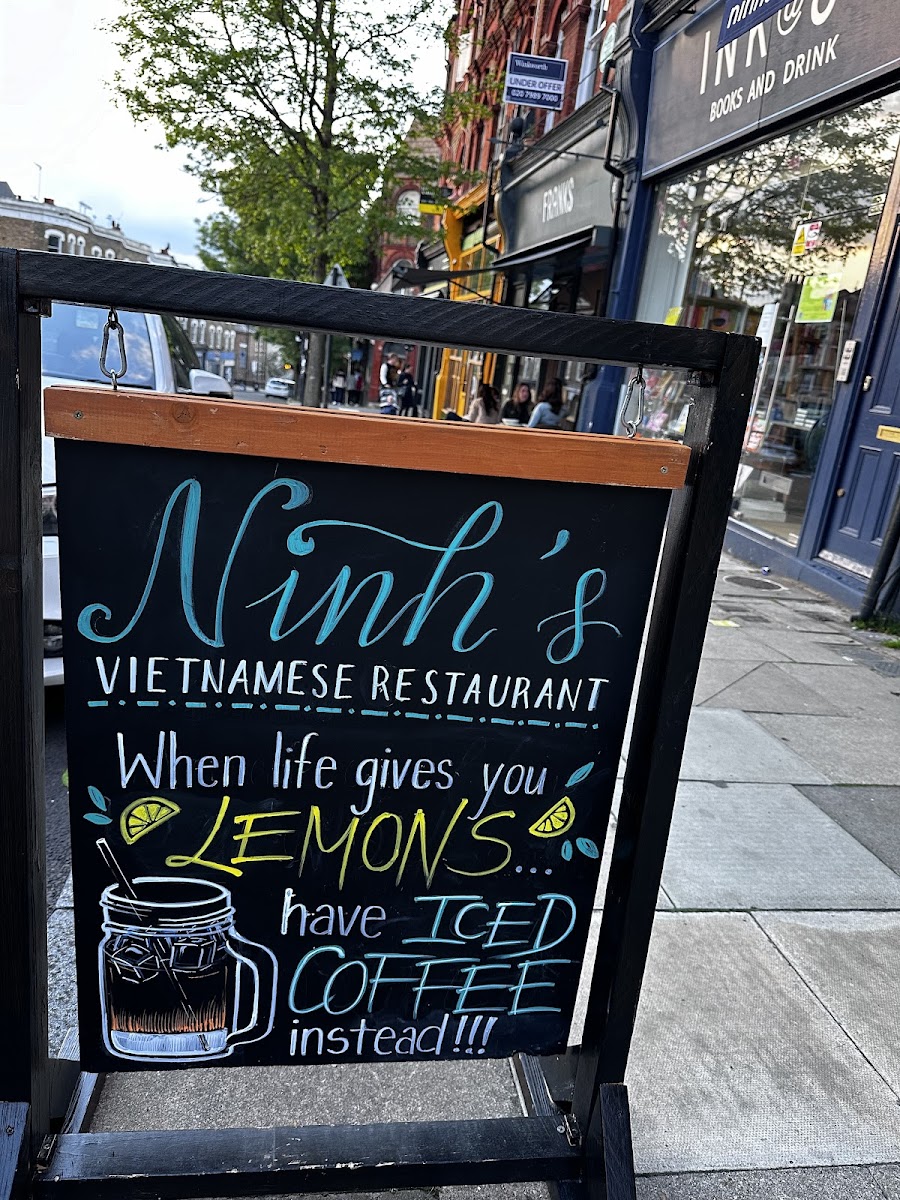 Winkworth
UNDER OFFER
020 7989 7000
INK@8
BOOKS AND DRINK
FRANKS
Ninh's
VIETNAMESE RESTAURANT
When life gives you
LEMONS...
have ICED
COFFEE
instead!!!